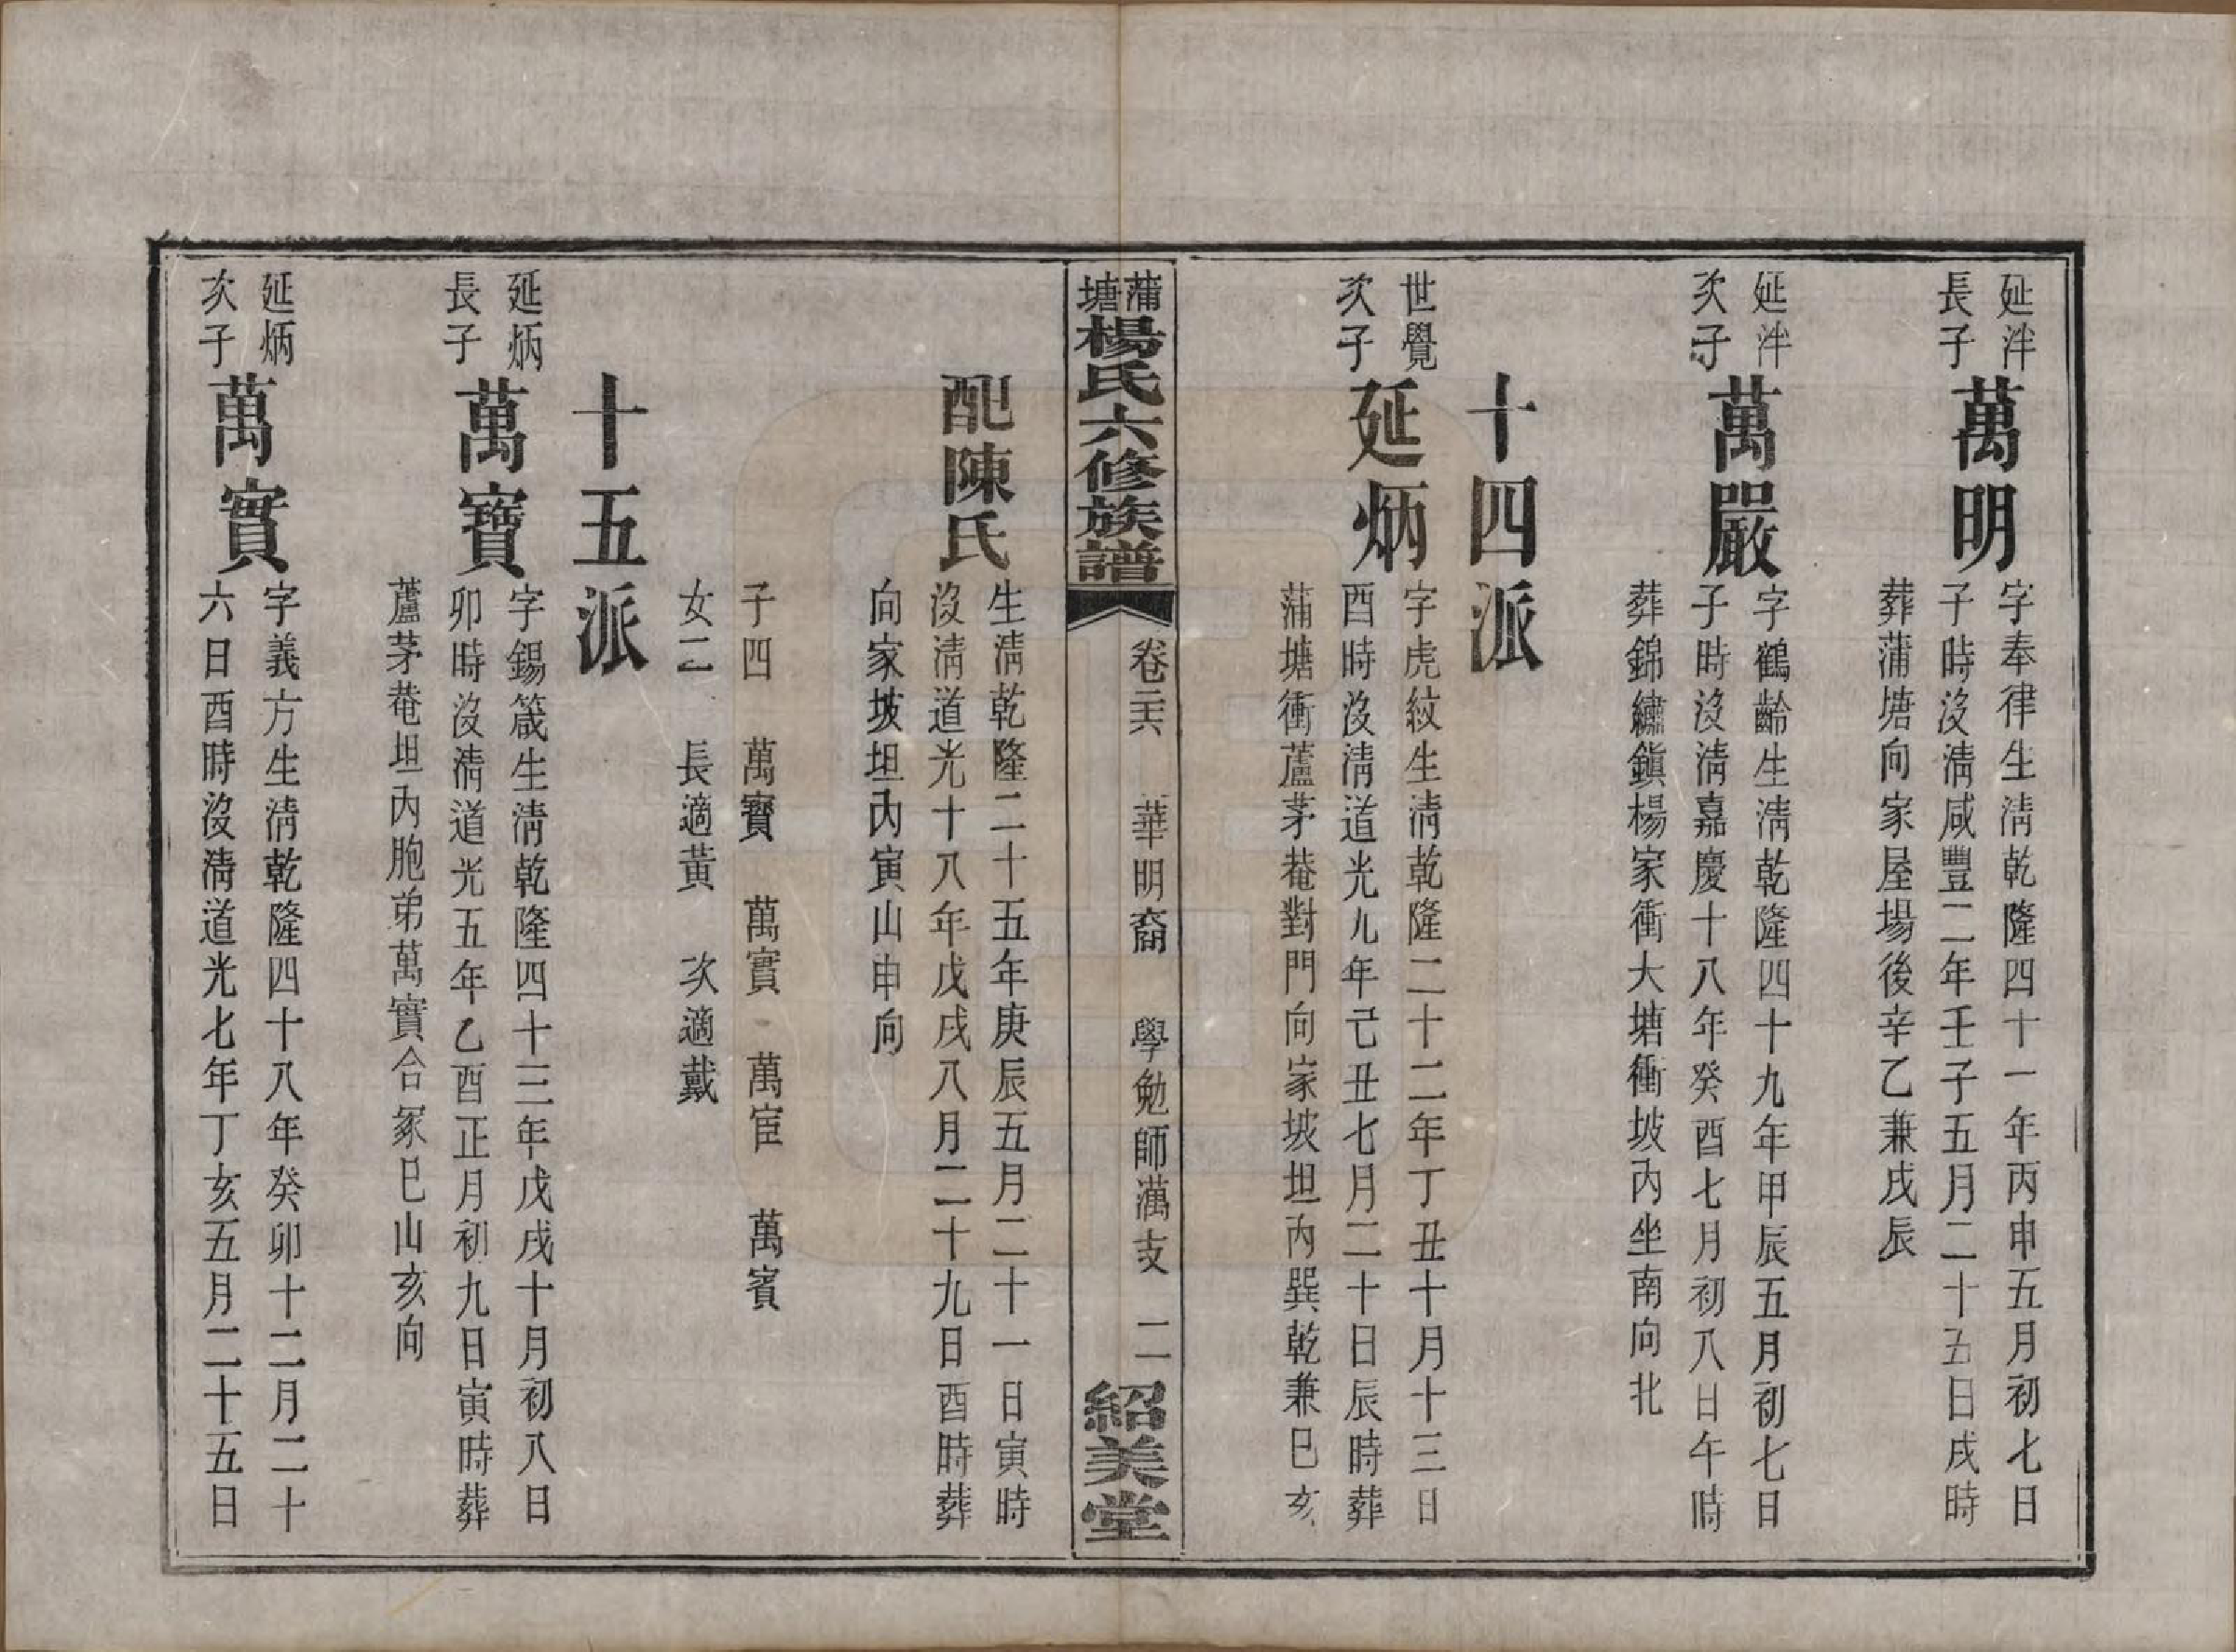 延泮
長子
萬明
字奉律生淸乾隆四十一年丙申五月初七日
子時沒淸咸豐二年壬子五月二十五日戌時
葬蒲塘向家屋場後辛乙兼戌辰
延泮
次子
萬嚴
字鶴齡生淸乾隆四十九年甲辰五月初七日
子時沒淸嘉慶十八年癸酉七月初八日午時
葬錦繡鎭楊家衝大塘衝坡內坐南向北
十四派
世覺
次子
延炳
字虎紋生淸乾隆二十二年丁丑十月十三日
酉時沒淸道光九年己丑七月二十日辰時葬
蒲塘衝蘆茅菴對門向家坡坦內巽乾兼巳亥
蒲塘楊氏六修族譜
卷二六 華明裔 學勉師萬支 二
紹美堂
配陳氏
生淸乾隆二十五年庚辰五月二十一日寅時
沒淸道光十八年戊戌八月二十九日酉時葬
向家坡坦內寅山申向
子四 萬寶 萬實 萬宦 萬賓
女二 長適黃 次適戴
十五派
延炳
長子
萬寶
字錫箴生淸乾隆四十三年戊戌十月初八日
卯時沒淸道光五年乙酉正月初九日寅時葬
蘆茅菴坦內胞弟萬實合冢巳山亥向
延炳
次子
萬實
字義方生淸乾隆四十八年癸卯十二月二十
六日酉時沒淸道光七年丁亥五月二十五日